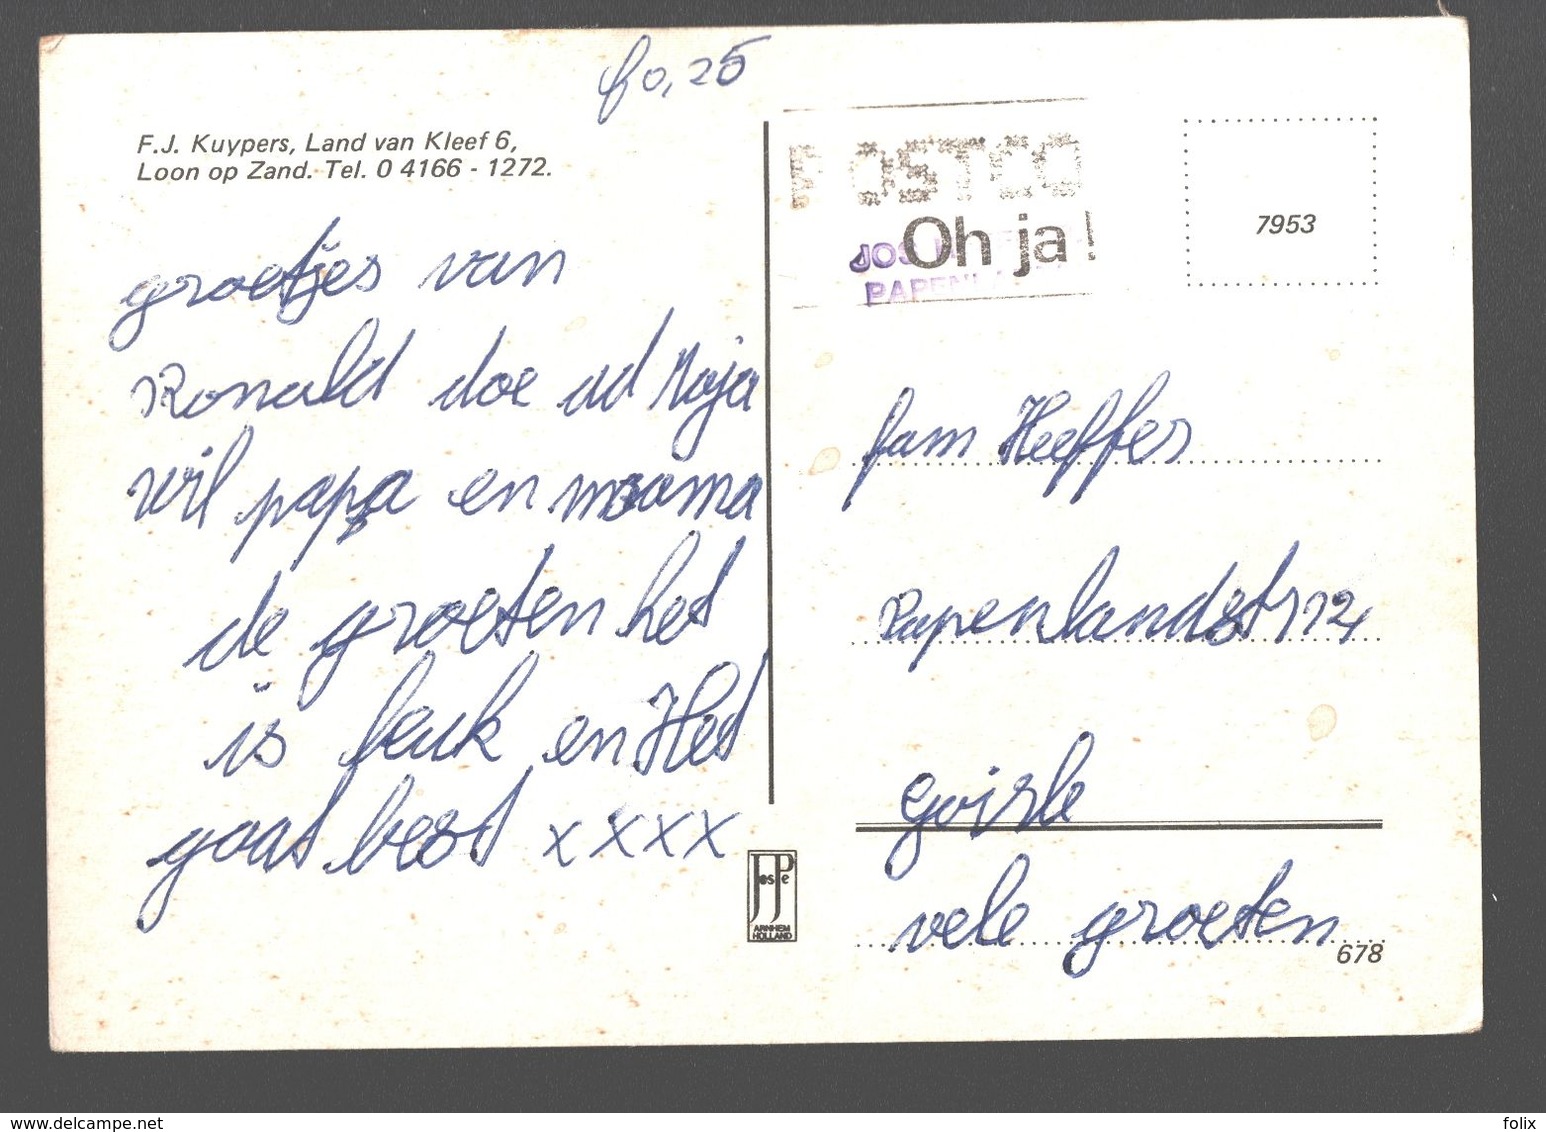 f0,25
F.J. Kuypers, Land van Kleef 6,
Loon op Zand. Tel. 0 4166 - 1272.
groetjes van
Ronald doe ad Maja
wil papa en mama
de groeten het
is leuk en Het
gaat best xxxx
POSTCO
Oh ja!
JOS
PAPENLA
7953
fam Heeffer
Papenlandst 12
goirle
vele groeten
678
JosPe
ARNHEM
HOLLAND
www.delcampe.net
folix